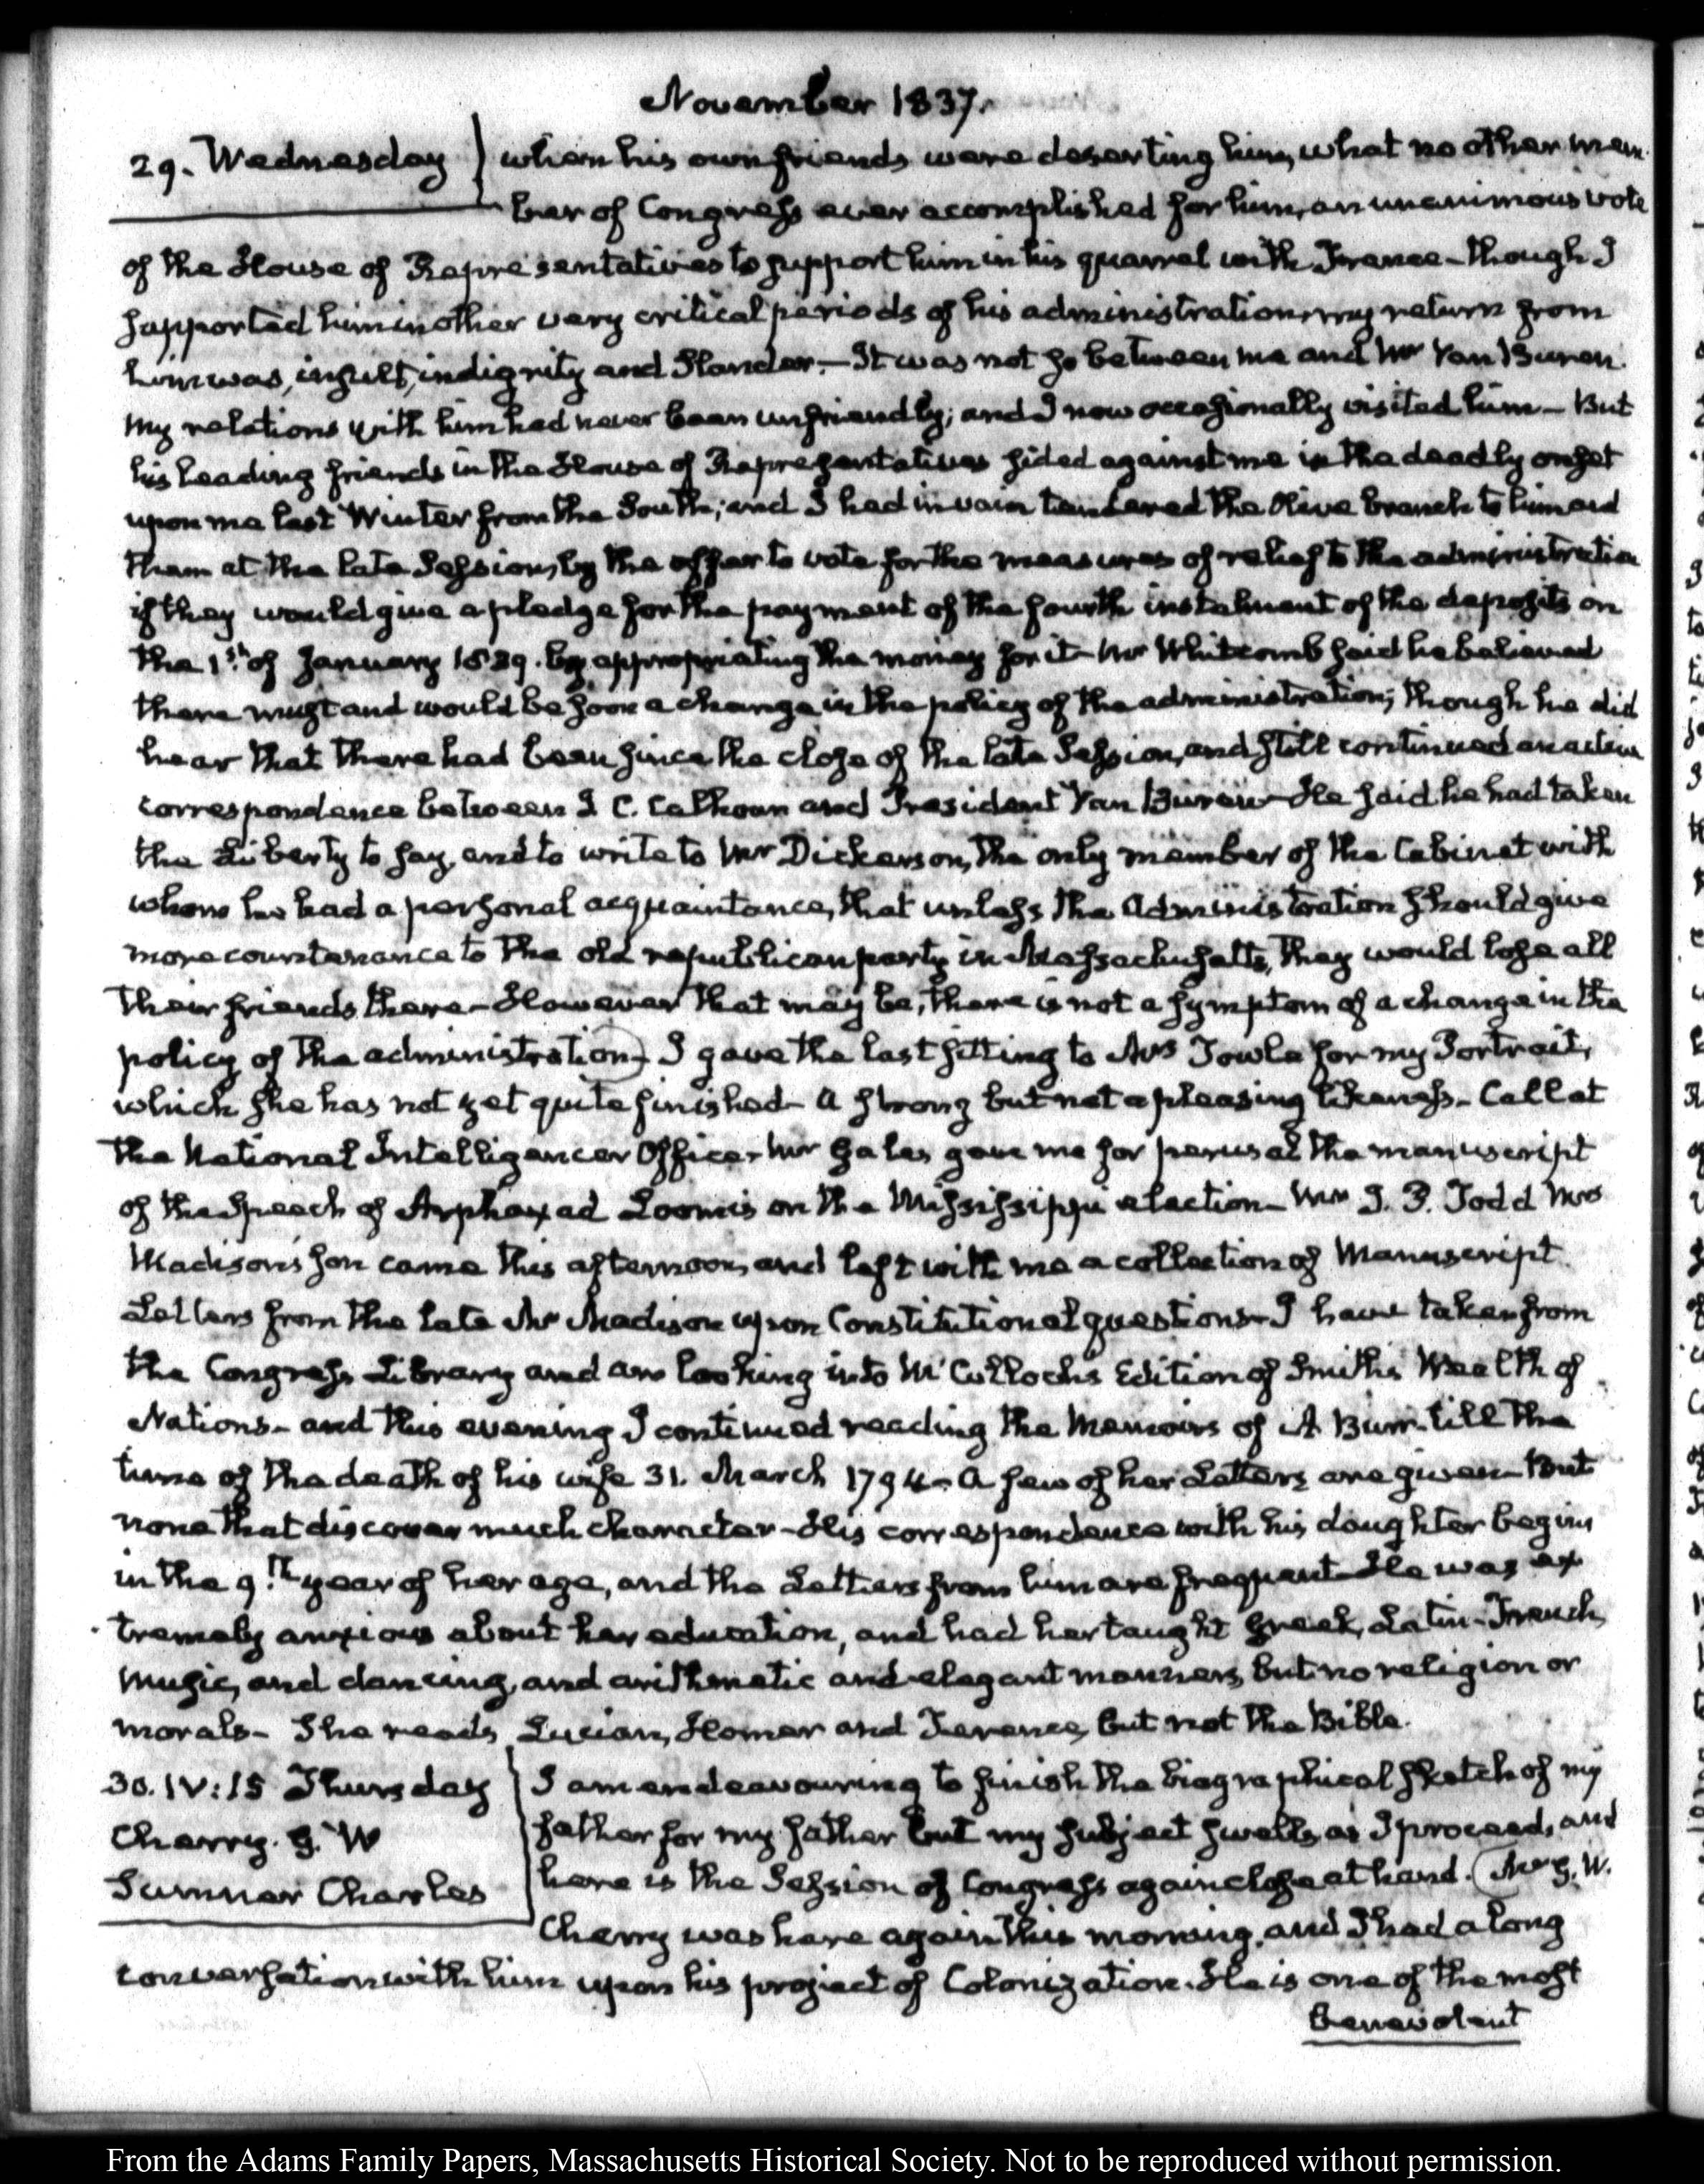 November 1837.
29. Wednesday when his own friends were deserting him, what no other mem
ber of Congress ever accomplished for him, an unanimous vote
of the House of Representatives to support him in his quarrel with France - though I
supported him in other very critical periods of his administration, my return from
him was, insult, indignity and Slander. - It was not so between me and Mr Van Buren.
My relations with him had never been unfriendly; and I now occasionally visited him - But
his leading friends in the House of Representatives sided against me in the deadly onset
upon me last Winter from the South; and I had in vain tendered the Olive branch to him and
them at the late Session, by the offer to vote for the measures of relief to the administration
if they would give a pledge for the payment of the fourth instalment of the deposits on
the 1st. of January 1839. by appropriating the money for it - Mr Whitcomb said he believed
there must and would be soon a change in the policy of the administration; though he did
hear that there had been since the close of the late Session, and still continued an active
correspondence between J. C. Calhoun and President Van Buren - He said he had taken
the Liberty to say, and to write to Mr Dickerson, the only member of the Cabinet with
whom he had a personal acquaintance, that unless the Administration should give
more countenance to the old republican party in Massachusetts, they would lose all
their friends there - However that may be, there is not a symptom of a change in the
policy of the administration - I gave the last sitting to Mrs Towle for my Portrait,
which she has not yet quite finished - A strong but not a pleasing likeness - Call at
the National Intelligencer Office - Mr Gales gave me for perusal the manuscript
of the Speech of Arphaxad Loomis on the Mississippi election - Mr J. P. Todd Mrs
Madison's son came this afternoon, and left with me a collection of Manuscript
Letters from the late Mr Madison upon Constitutional questions - I have taken from
the Congress Library and am looking into McCulloch's Edition of Smith's Wealth of
Nations - and this evening I continued reading the Memoirs of A Burr - till the
time of the death of his wife 31. March 1794 - A few of her Letters are given - But
none that discover much character - His correspondence with his daughter begins
in the 9.th year of her age, and the Letters from him are frequent - He was ex
tremely anxious about her education, and had her taught Greek, Latin - French,
Music, and dancing, and arithmetic and elegant manners, but no religion or
morals - She reads Lucian, Homer and Terence, but not the Bible.
30. IV:15 Thursday I am endeavouring to finish the biographical sketch of my
Cherry. G. W father for my father but my subject swells as I proceed, and
Sumner Charles here is the Session of Congress again close at hand. (Mr G. W.
Cherry was here again this morning, and I had a long
conversation with him upon his project of Colonization. He is one of the most
benevolent
From the Adams Family Papers, Massachusetts Historical Society. Not to be reproduced without permission.